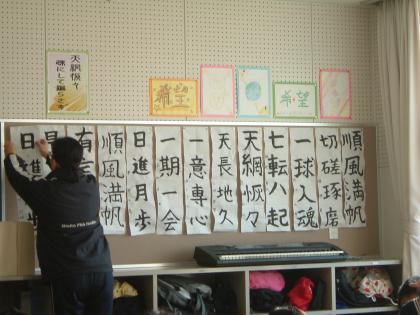 天網恢々
疎にして漏らさず
希望
希望
順風満帆
切磋琢磨
一球入魂
七転八起
天網恢々
天長地久
一意専心
一期一会
日進月歩
順風満帆
有言
日進歩